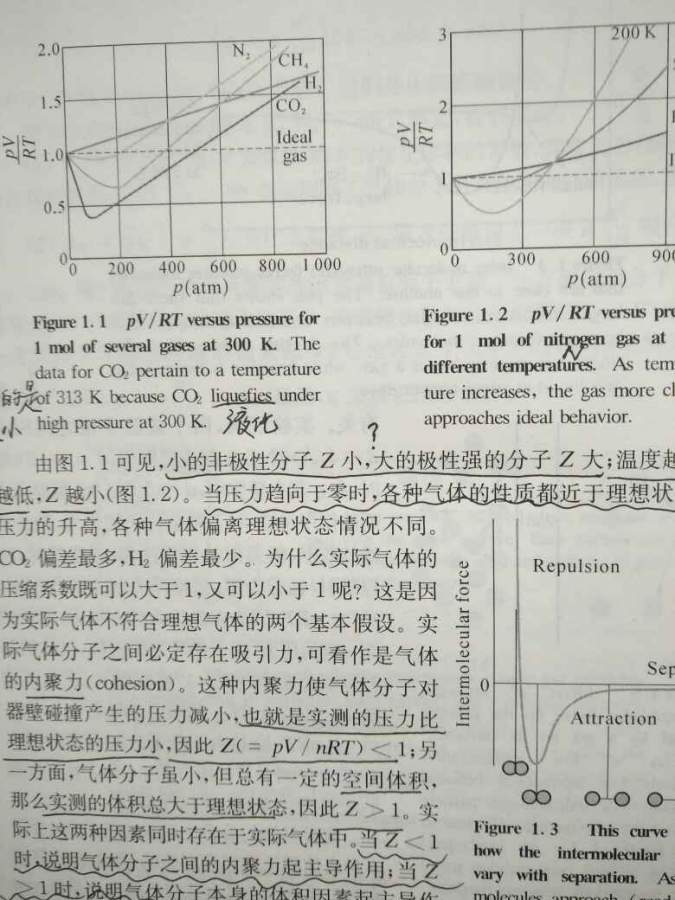 2.0
1.5
1.0
0.5
0
pV
RT
N₂
CH₄
H₂
CO₂
Ideal
gas
0 200 400 600 800 1 000
p(atm)
Figure 1. 1 pV/RT versus pressure for
1 mol of several gases at 300 K. The
data for CO₂ pertain to a temperature
of 313 K because CO₂ liquefies under
high pressure at 300 K.
的是
小
液化
3
2
1
0
pV
RT
200 K
0 300 600 900
p(atm)
Figure 1. 2 pV/RT versus pre
for 1 mol of nitrogen gas at
different temperatures. As tem
ture increases, the gas more cl
approaches ideal behavior.
N
?
由图 1.1 可见,小的非极性分子 Z 小,大的极性强的分子 Z 大;温度越
越低,Z 越小(图 1.2)。当压力趋向于零时,各种气体的性质都近于理想状
压力的升高,各种气体偏离理想状态情况不同。
CO₂ 偏差最多,H₂ 偏差最少。为什么实际气体的
压缩系数既可以大于 1,又可以小于 1 呢? 这是因
为实际气体不符合理想气体的两个基本假设。实
际气体分子之间必定存在吸引力,可看作是气体
的内聚力(cohesion)。这种内聚力使气体分子对
器壁碰撞产生的压力减小,也就是实测的压力比
理想状态的压力小,因此 Z(= pV/nRT) < 1;另
一方面,气体分子虽小,但总有一定的空间体积,
那么实测的体积总大于理想状态,因此 Z > 1。实
际上这两种因素同时存在于实际气体中。当 Z < 1
时,说明气体分子之间的内聚力起主导作用;当 Z
> 1 时,说明气体分子本身的体积因素起主导作
Intermolecular force
0
Repulsion
Sep
Attraction
Figure 1. 3 This curve
how the intermolecular
vary with separation. As
molecules approach